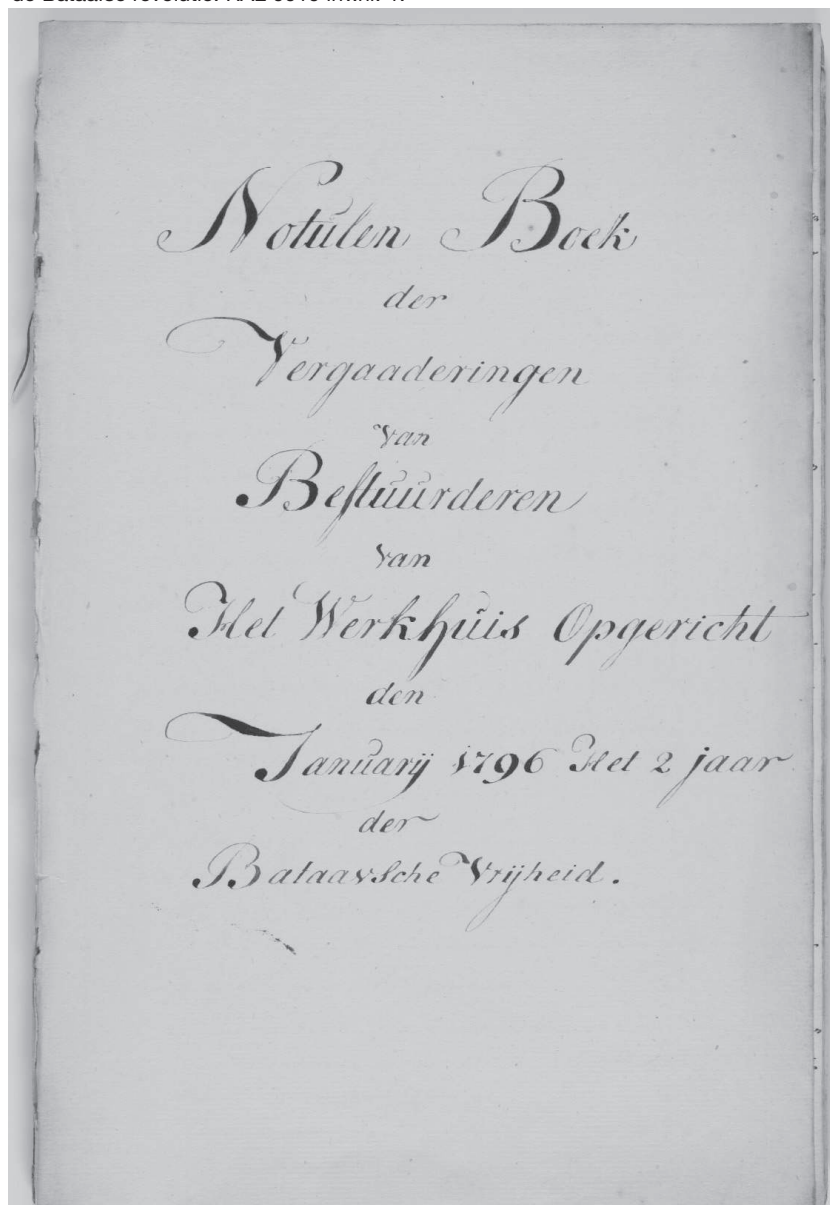 Notulen Boek
der
Vergaaderingen
van
Bestuurderen
van
Het Werkhuis Opgericht
den
January 1796 Het 2 jaar
der
Bataavsche Vrijheid.